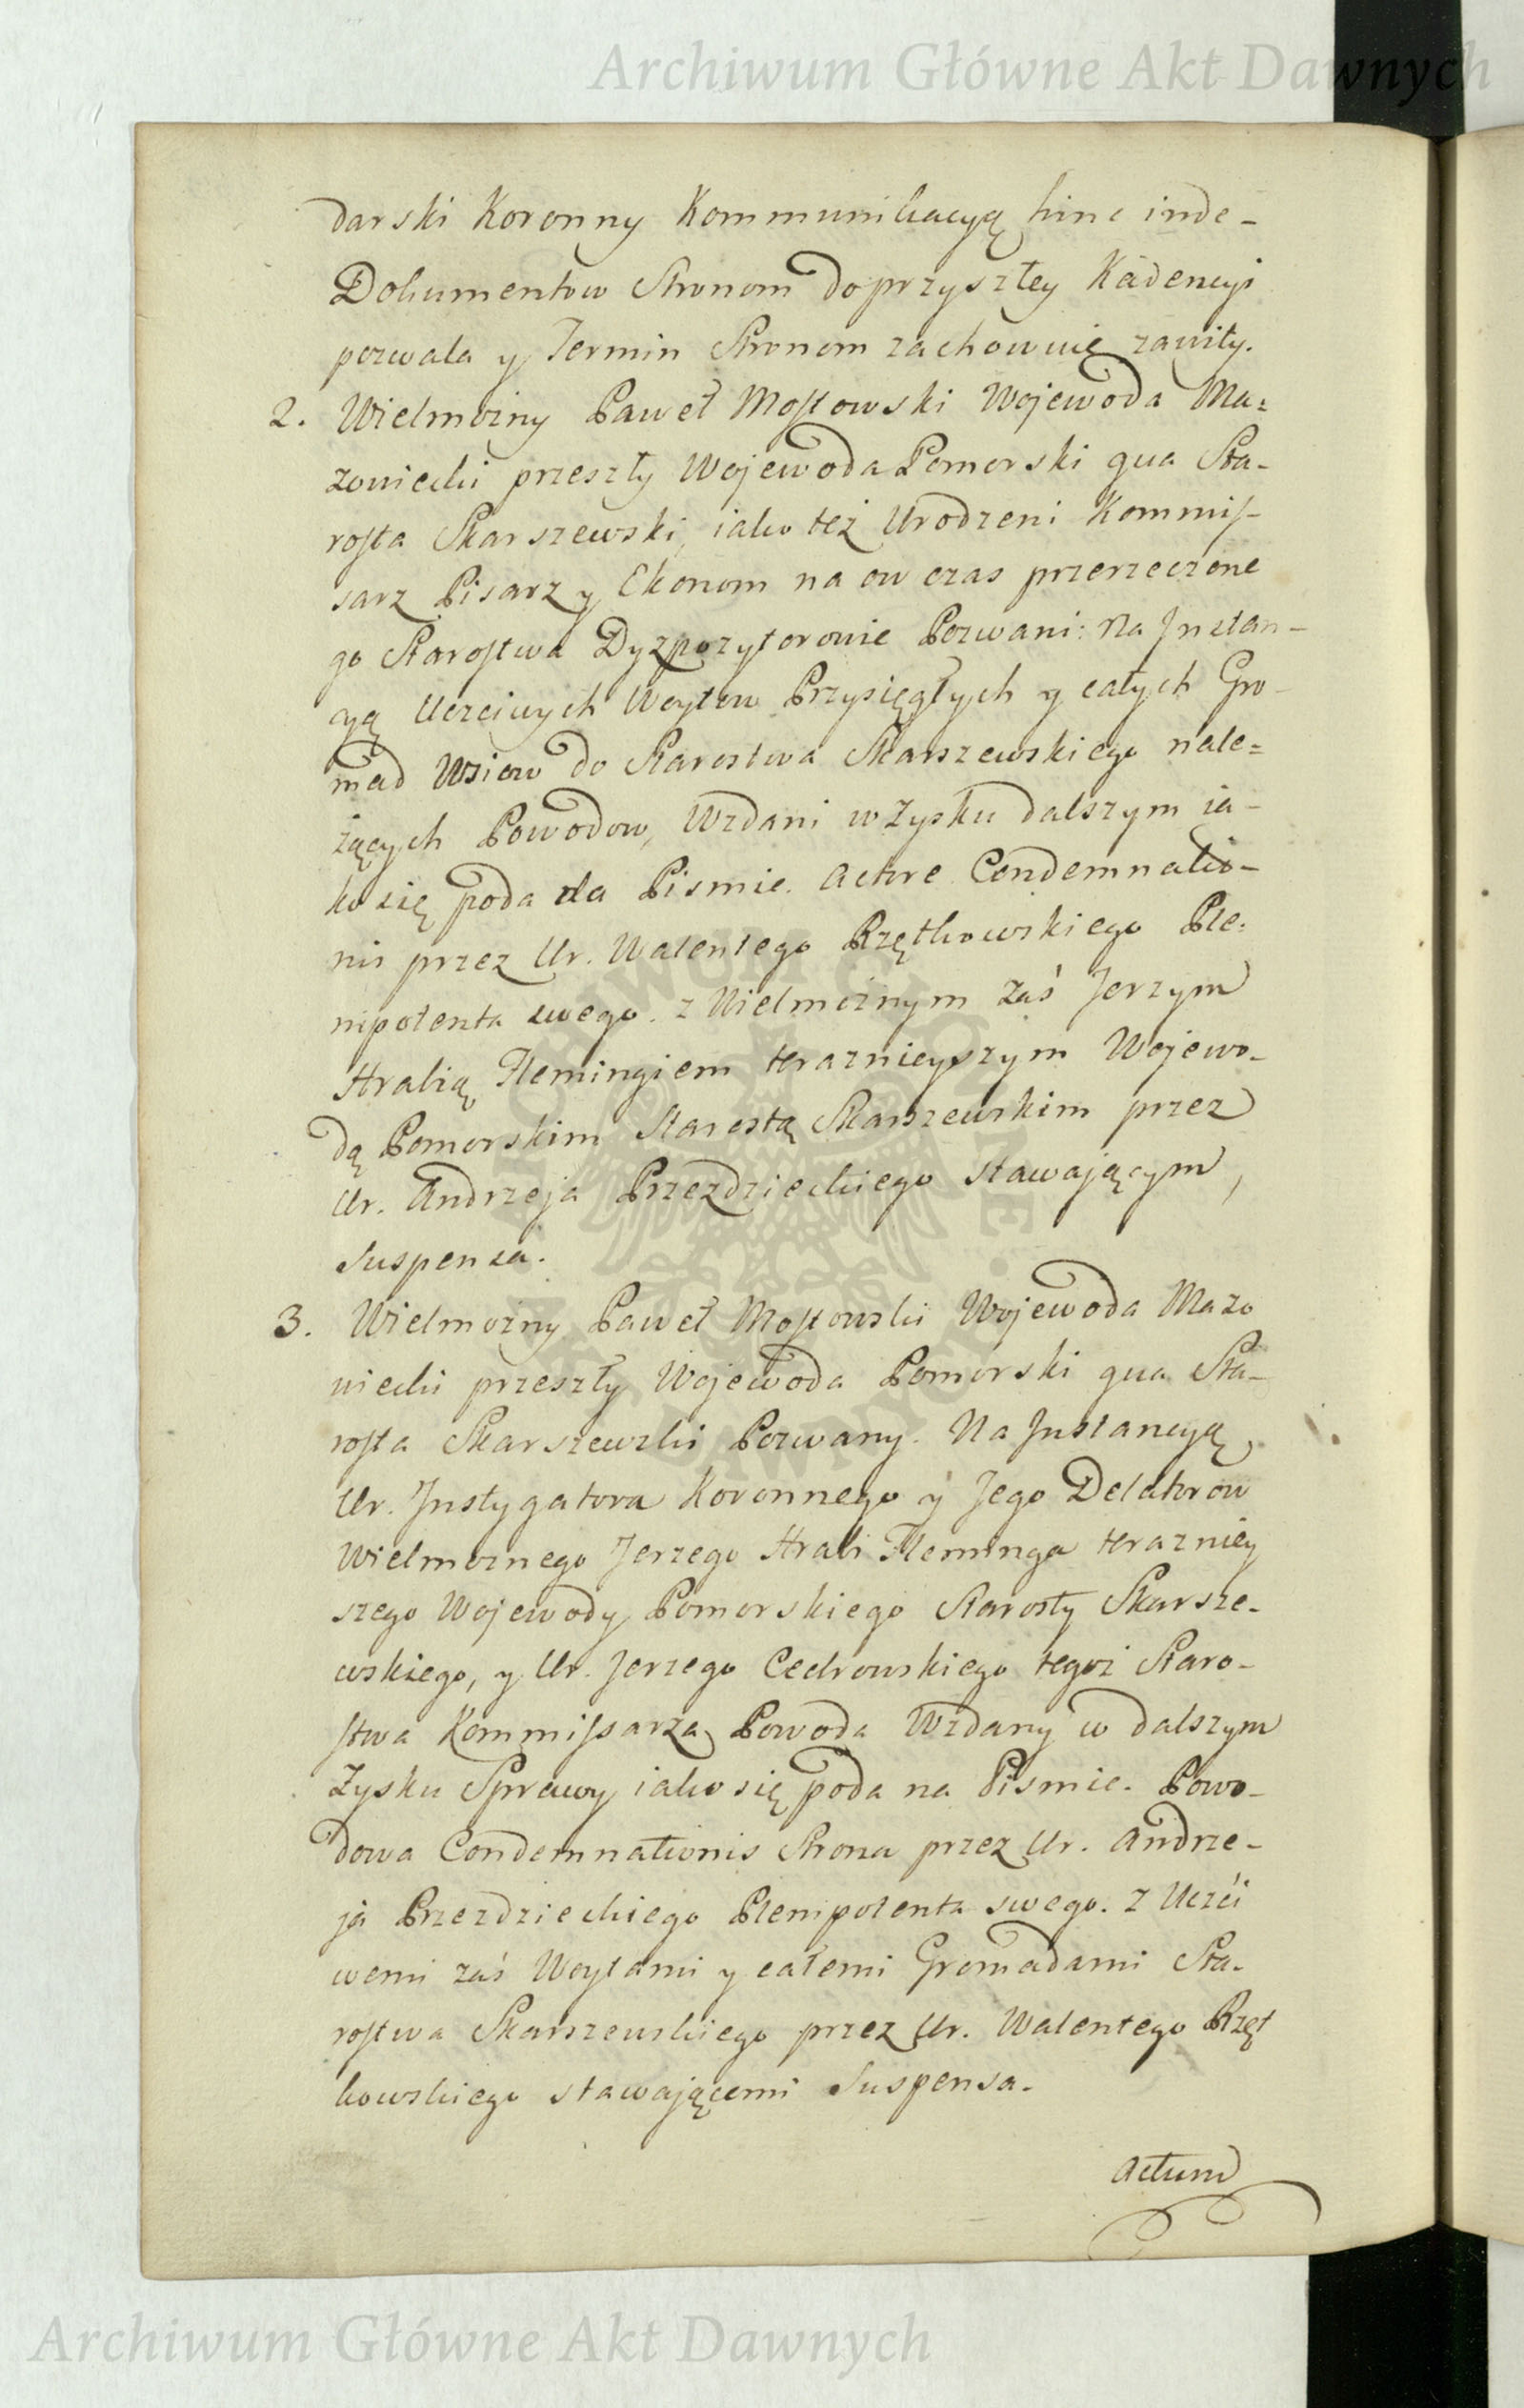 Archiwum Główne Akt Dawnych
darski Koronny Kommunikacyą hinc inde-
Dokumentow Stronom do przyszłey Kadencyi
pozwala y Termin Stronom zachowuię zawity.
2. Wielmożny Paweł Mostowski Wojewoda Ma=
zowiecki przeszły Wojewoda Pomorski qua Sta-
rosta Skarszewski, iako też Urodzeni Kommis-
sarz Pisarz y Ekonom na ow czas przerzeczone
go Starostwa Dyzpozytorowie Pozwani: Na Instan-
cyą Uczciwych Woytow Przysięgłych y całych Gro-
mad Wsiow do Starostwa Skarszewskiego nale=
żących Powodow, Wzdani w Zysku dalszym ia-
ko się poda na Pismie. Actore Condemnatio-
nis przez Ur. Walentego Rzętkowskiego Ple=
nipotenta swego. z Wielmożnym zaś Jerzym
Hrabią Flemingiem teraznieyszym Wojewo-
dą Pomorskim Starostą Skarszewskim przez
Ur. Andrzeja Przezdzieckiego stawającym,
Suspensa.
3. Wielmożny Paweł Mostowski Wojewoda Mazo
wiecki przeszły Wojewoda Pomorski qua Sta-
rosta Skarszewski Pozwany. Na Instancyą
Ur. Instygatora Koronnego y Jego Delatorow
Wielmożnego Jerzego Hrabi Fleminga terazniey
szego Wojewody Pomorskiego Starosty Skarsze-
wskiego, y Ur. Jerzego Cedrowskiego tegoż Staro-
stwa Kommissarza Powoda Wzdany w dalszym
Zysku Sprawy iako się poda na Pismie. Powo-
dowa Condemnationis Strona przez Ur. Andrze-
ja Przezdzieckiego Plenipotenta swego. Z Uczći
wemi zaś Woytami y całemi Gromadami Sta-
rostwa Skarszewskiego przez Ur. Walentego Rzęt
kowskiego stawającemi Suspensa.
Actum
Archiwum Główne Akt Dawnych